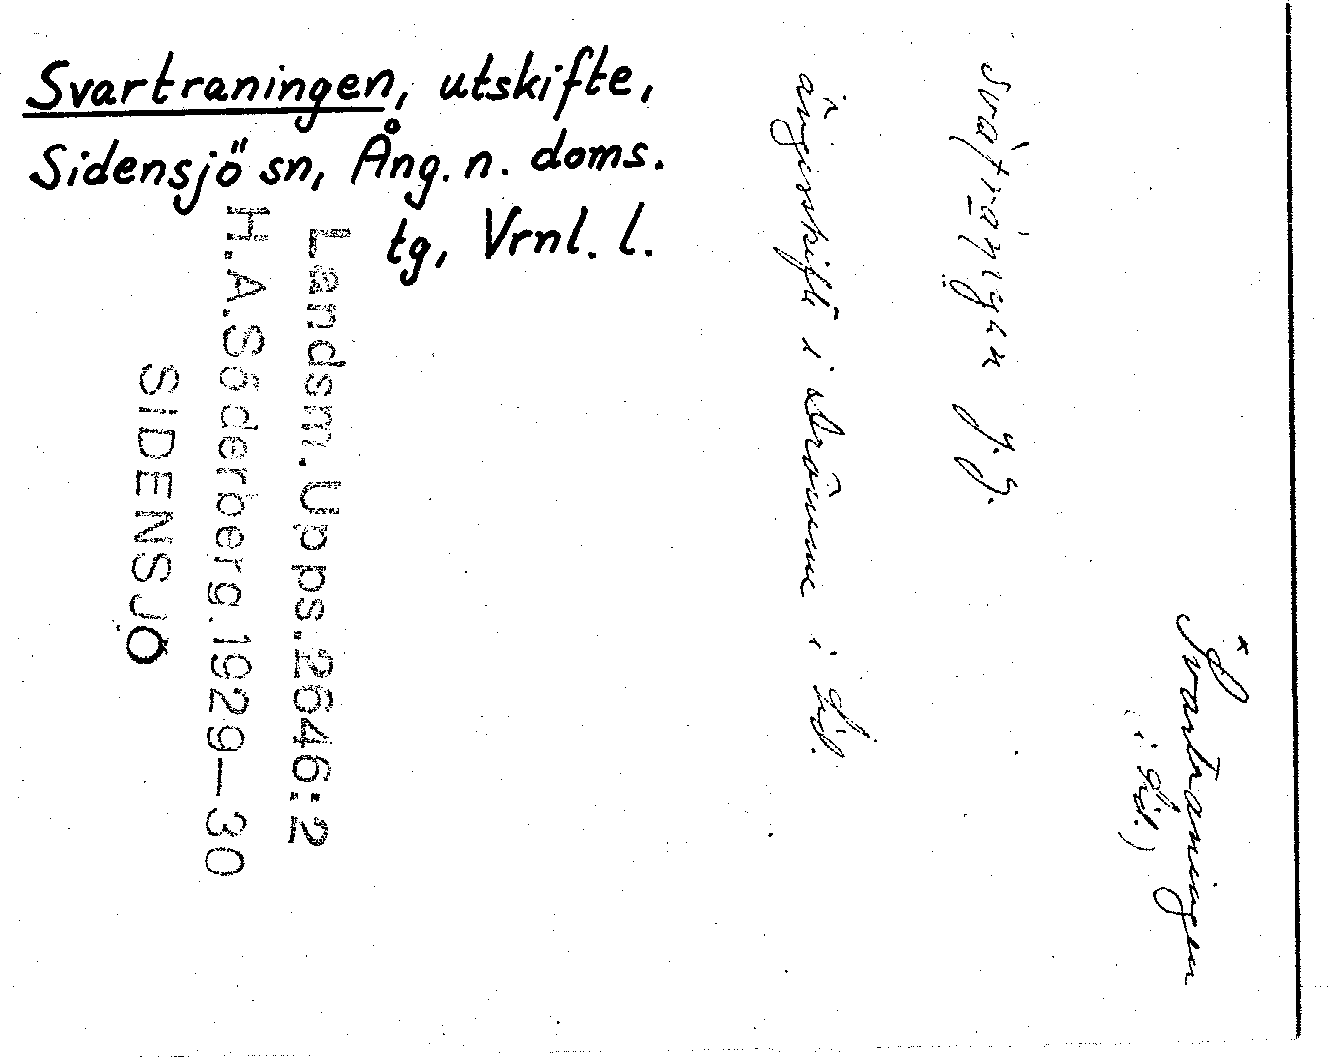 Svartraningen, utskifte,
Sidensjö sn, Ång. n. doms.
tg, Vrnl. l.
*Svartraningen
(i Sid.)
J. J.
ängesskifte i Drömme i Sid.
Landsm. Upps. 2646:2
H.A. Söderberg. 1929—30
SIDENSJÖ